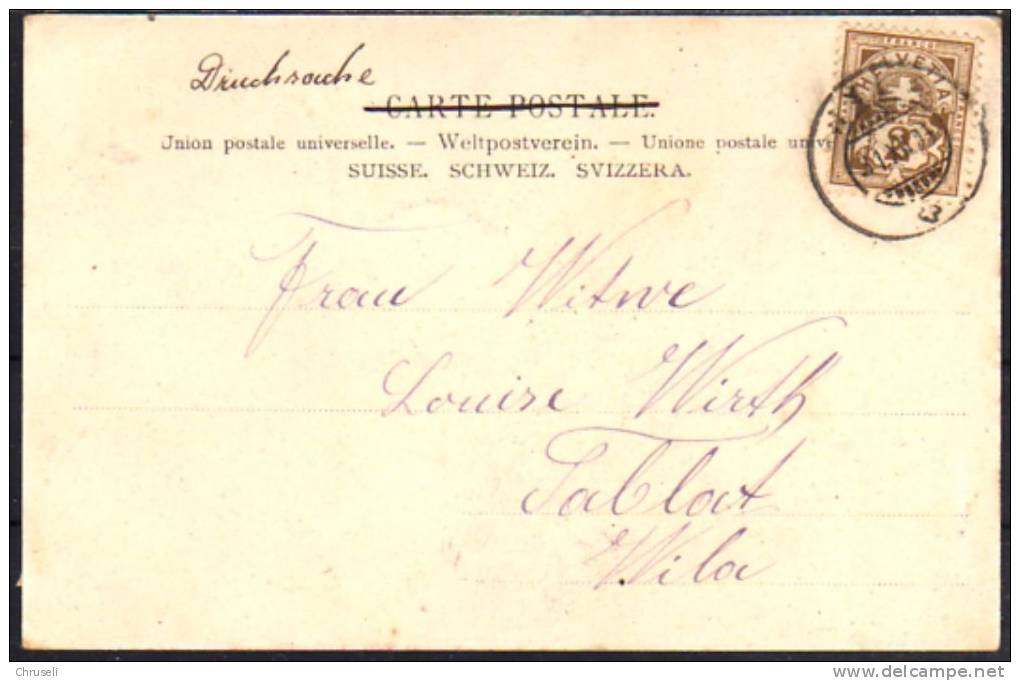 Drucksache
CARTE POSTALE.
Union postale universelle. — Weltpostverein. — Unione postale
SUISSE. SCHWEIZ. SVIZZERA.
FRANCO
HELVETIA
Frau Witwe
Louise Wirth
Tablat
Wila
Chruseli
www.delcampe.net